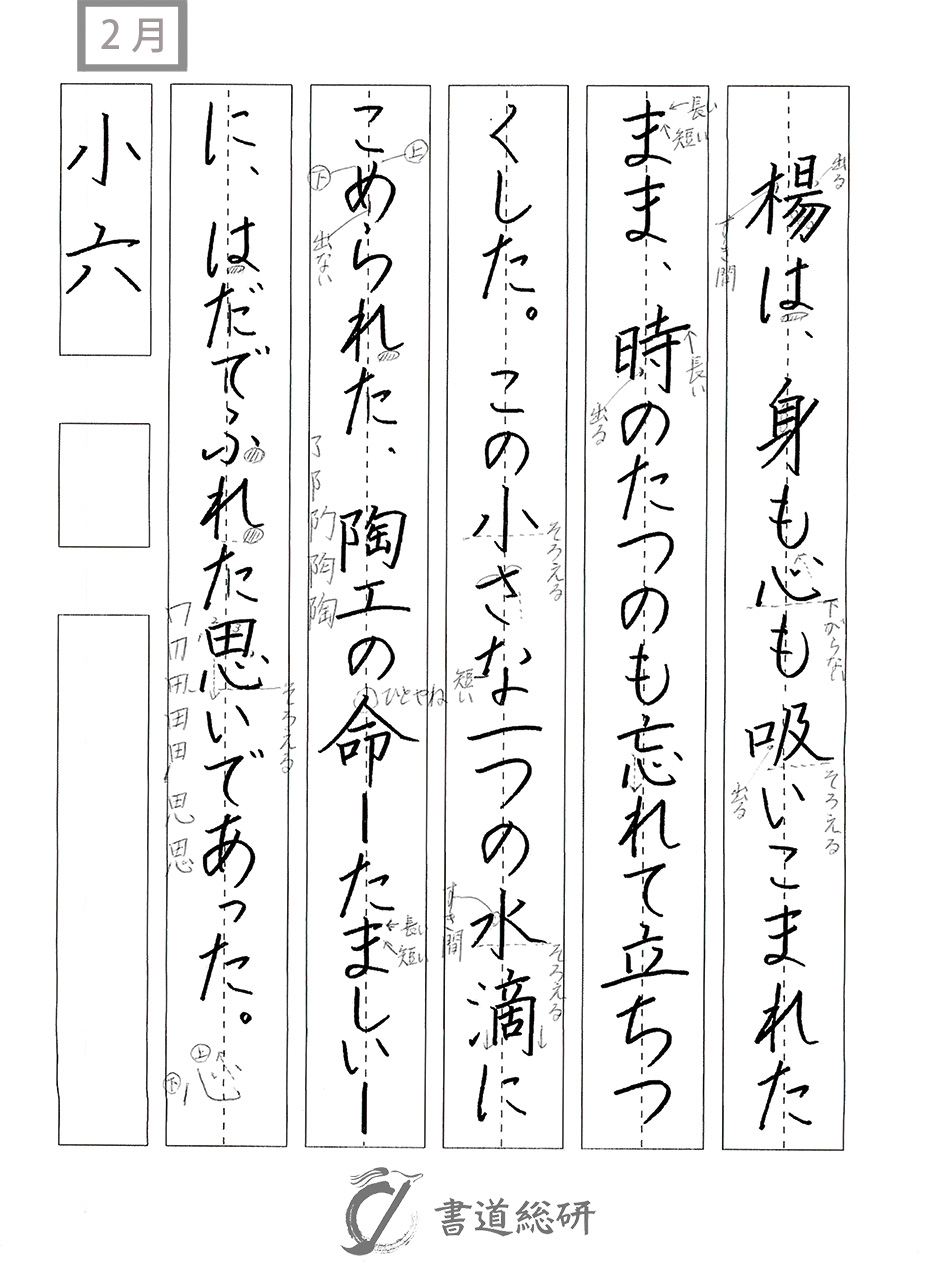 2月
楊は、身も心も吸いこまれた
まま、時のたつのも忘れて立ちつ
くした。この小さな一つの水滴に
こめられた、陶工の命ーたましいー
に、はだでふれた思いであった。
小六
出る
すき間
下がらない
そろえる
出る
←長い
短い
長い
出る
そろえる
短い
すき間
そろえる
上
下
出ない
陶
陶
ひとやね
←長い
短い
そろえる
思
思
上
下
心
書道総研